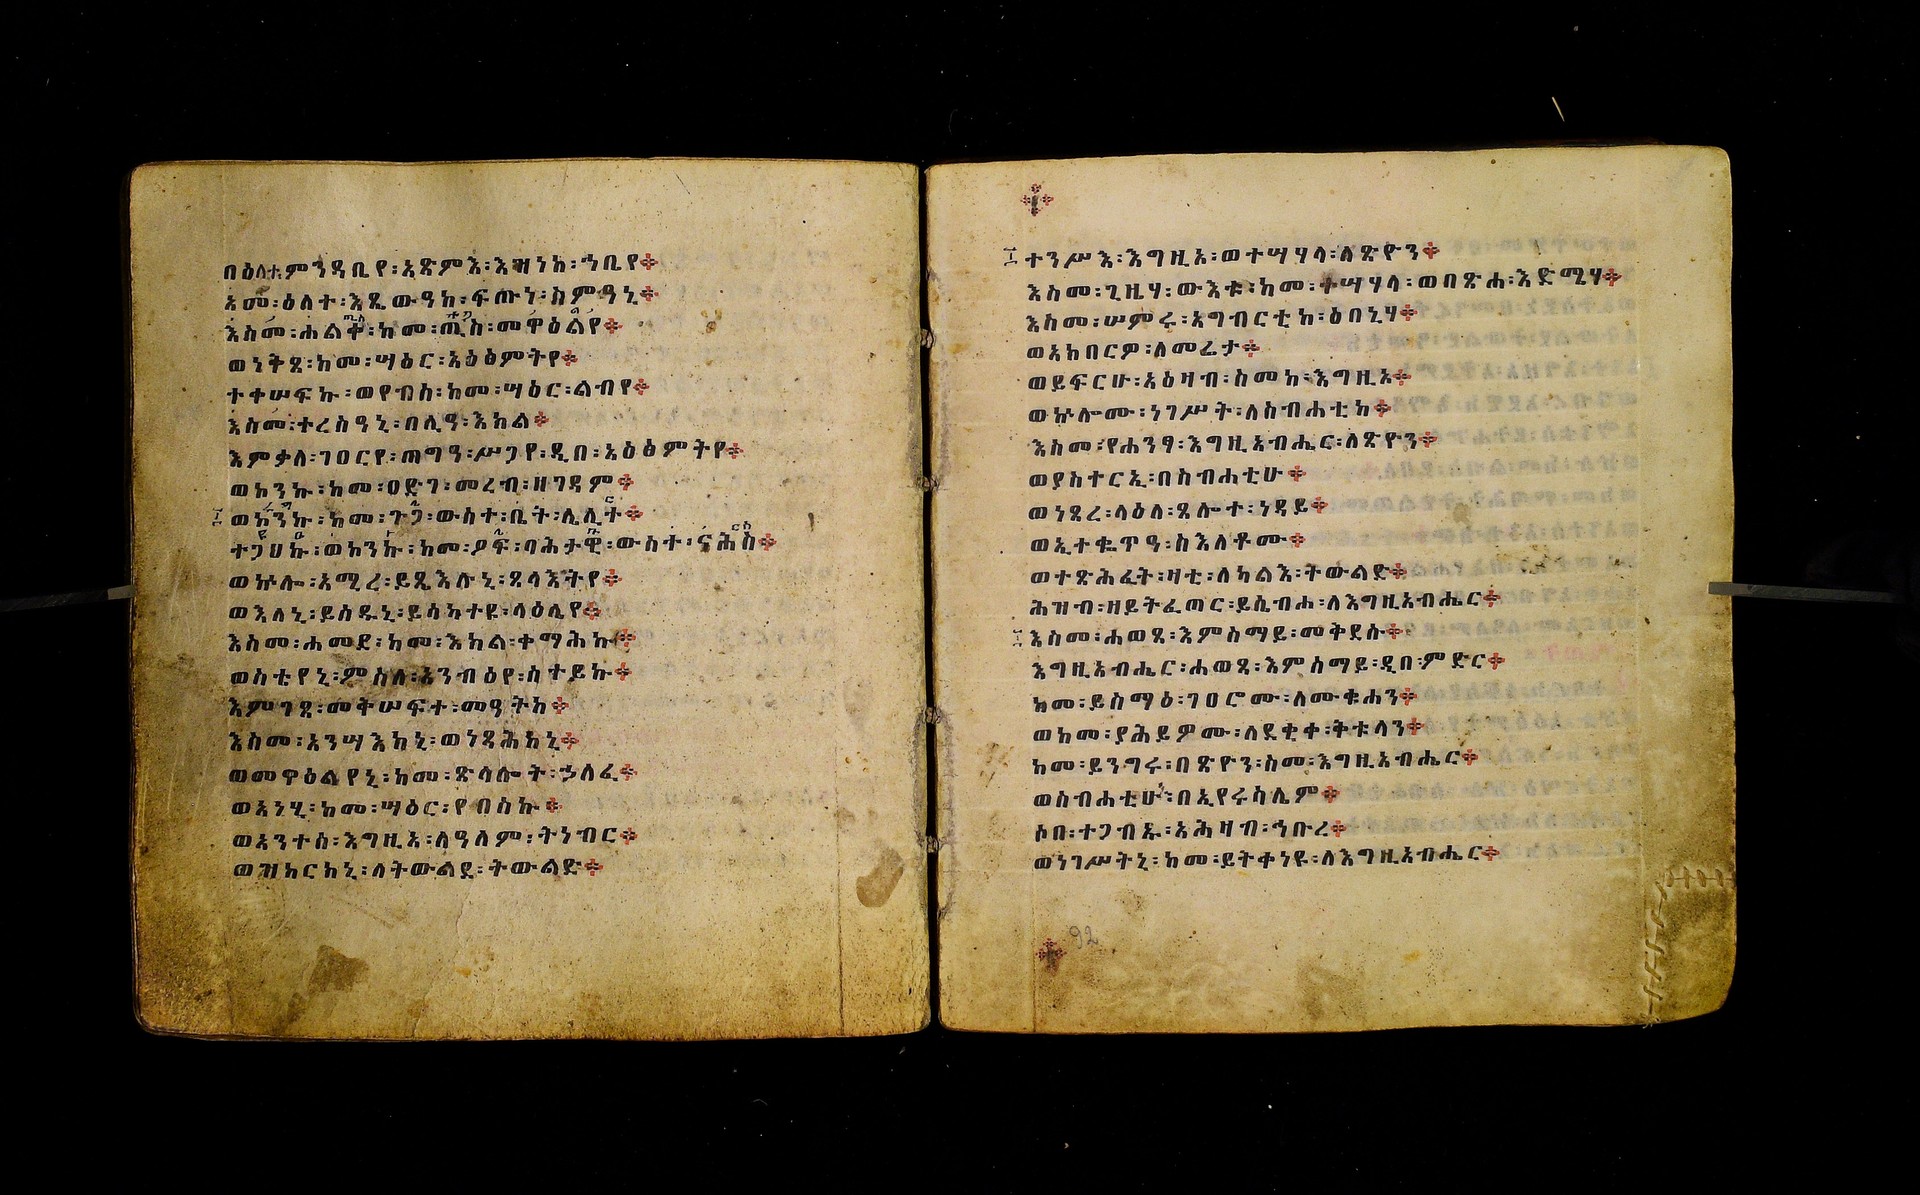 በዕለተ፡ምንዳቤየ፡አጽምእ፡እዝነከ፡ኀቤየ
አመ፡ዕለተ፡እጼውዓከ፡ፍጡነ፡ስምዓኒ
እስመ፡ሐልቀ፡ከመ፡ጢስ፡መዋዕልየ
ወነቅጸ፡ከመ፡ሣዕር፡አዕፅምትየ
ተቀሠፍኩ፡ወየብሰ፡ከመ፡ሣዕር፡ልብየ
እስመ፡ተረስዓኒ፡በሊዓ፡እክል
እምቃለ፡ገዐርየ፡ጠግዓ፡ሥጋየ፡ዲበ፡አዕፅምትየ
ወከንኩ፡ከመ፡ዐድገ፡መረብ፡ዘገዳም
ወከንኩ፡ከመ፡ጉጓ፡ውስተ፡ቤት፡ሌሊት
ተጋህኩ፡ወከንኩ፡ከመ፡ዖፍ፡ባሕታዊ፡ውስተ፡ናሕስ
ወኵሎ፡አሚረ፡ይጼእሉኒ፡ጸላእትየ
ወእለኒ፡ይሰዱኒ፡ይሳካተዩ፡ላዕሌየ
እስመ፡ሐመደ፡ከመ፡እክል፡ቀማሕኩ
ወስቴየኒ፡ምስለ፡አንብዕየ፡ሰተይኩ
እምገጸ፡መቅሠፍተ፡መዓትከ
እስመ፡አንሣእከኒ፡ወነጻሕከኒ
ወመዋዕልየኒ፡ከመ፡ጽላሎት፡ኃለፈ
ወአነሂ፡ከመ፡ሣዕር፡የበስኩ
ወአንተሰ፡እግዚኦ፡ለዓለም፡ትነብር
ወዝክርከኒ፡ለትውልደ፡ትውልድ
ተንሥእ፡እግዚኦ፡ወተሣሃላ፡ለጽዮን
እስመ፡ጊዜሃ፡ውእቱ፡ከመ፡ተሣሃላ፡ወበጽሐ፡እድሜሃ
እስመ፡ሠምሩ፡አግብርቲከ፡ዕበኒሃ
ወአክበርዎ፡ለመሬታ
ወይፍርሁ፡አሕዛብ፡ስመከ፡እግዚኦ
ወኵሎሙ፡ነገሥት፡ለስብሐቲከ
እስመ፡የሐንፃ፡እግዚአብሔር፡ለጽዮን
ወያስተርኢ፡በስብሐቲሁ
ወነጸረ፡ላዕለ፡ጸሎተ፡ነዳይ
ወኢተቈጥዓ፡ስእለቶሙ
ወተጽሕፈት፡ዛቲ፡ለካልእ፡ትውልድ
ሕዝብ፡ዘይትፈጠር፡ይሴብሖ፡ለእግዚአብሔር
እስመ፡ሐወጸ፡እምስማይ፡መቅደሱ
እግዚአብሔር፡ሐወጸ፡እምሰማይ፡ዲበ፡ምድር
ከመ፡ይስማዕ፡ገዐሮሙ፡ለሙቁሐን
ወከመ፡ያሕይዎሙ፡ለደቂቀ፡ቅቱላን
ከመ፡ይንግሩ፡በጽዮን፡ስመ፡እግዚአብሔር
ወስብሐቲሁ፡በኢየሩሳሌም
ሶበ፡ተጋብኡ፡አሕዛብ፡ኅቡረ
ወነገሥትኒ፡ከመ፡ይትቀነዩ፡ለእግዚአብሔር
92